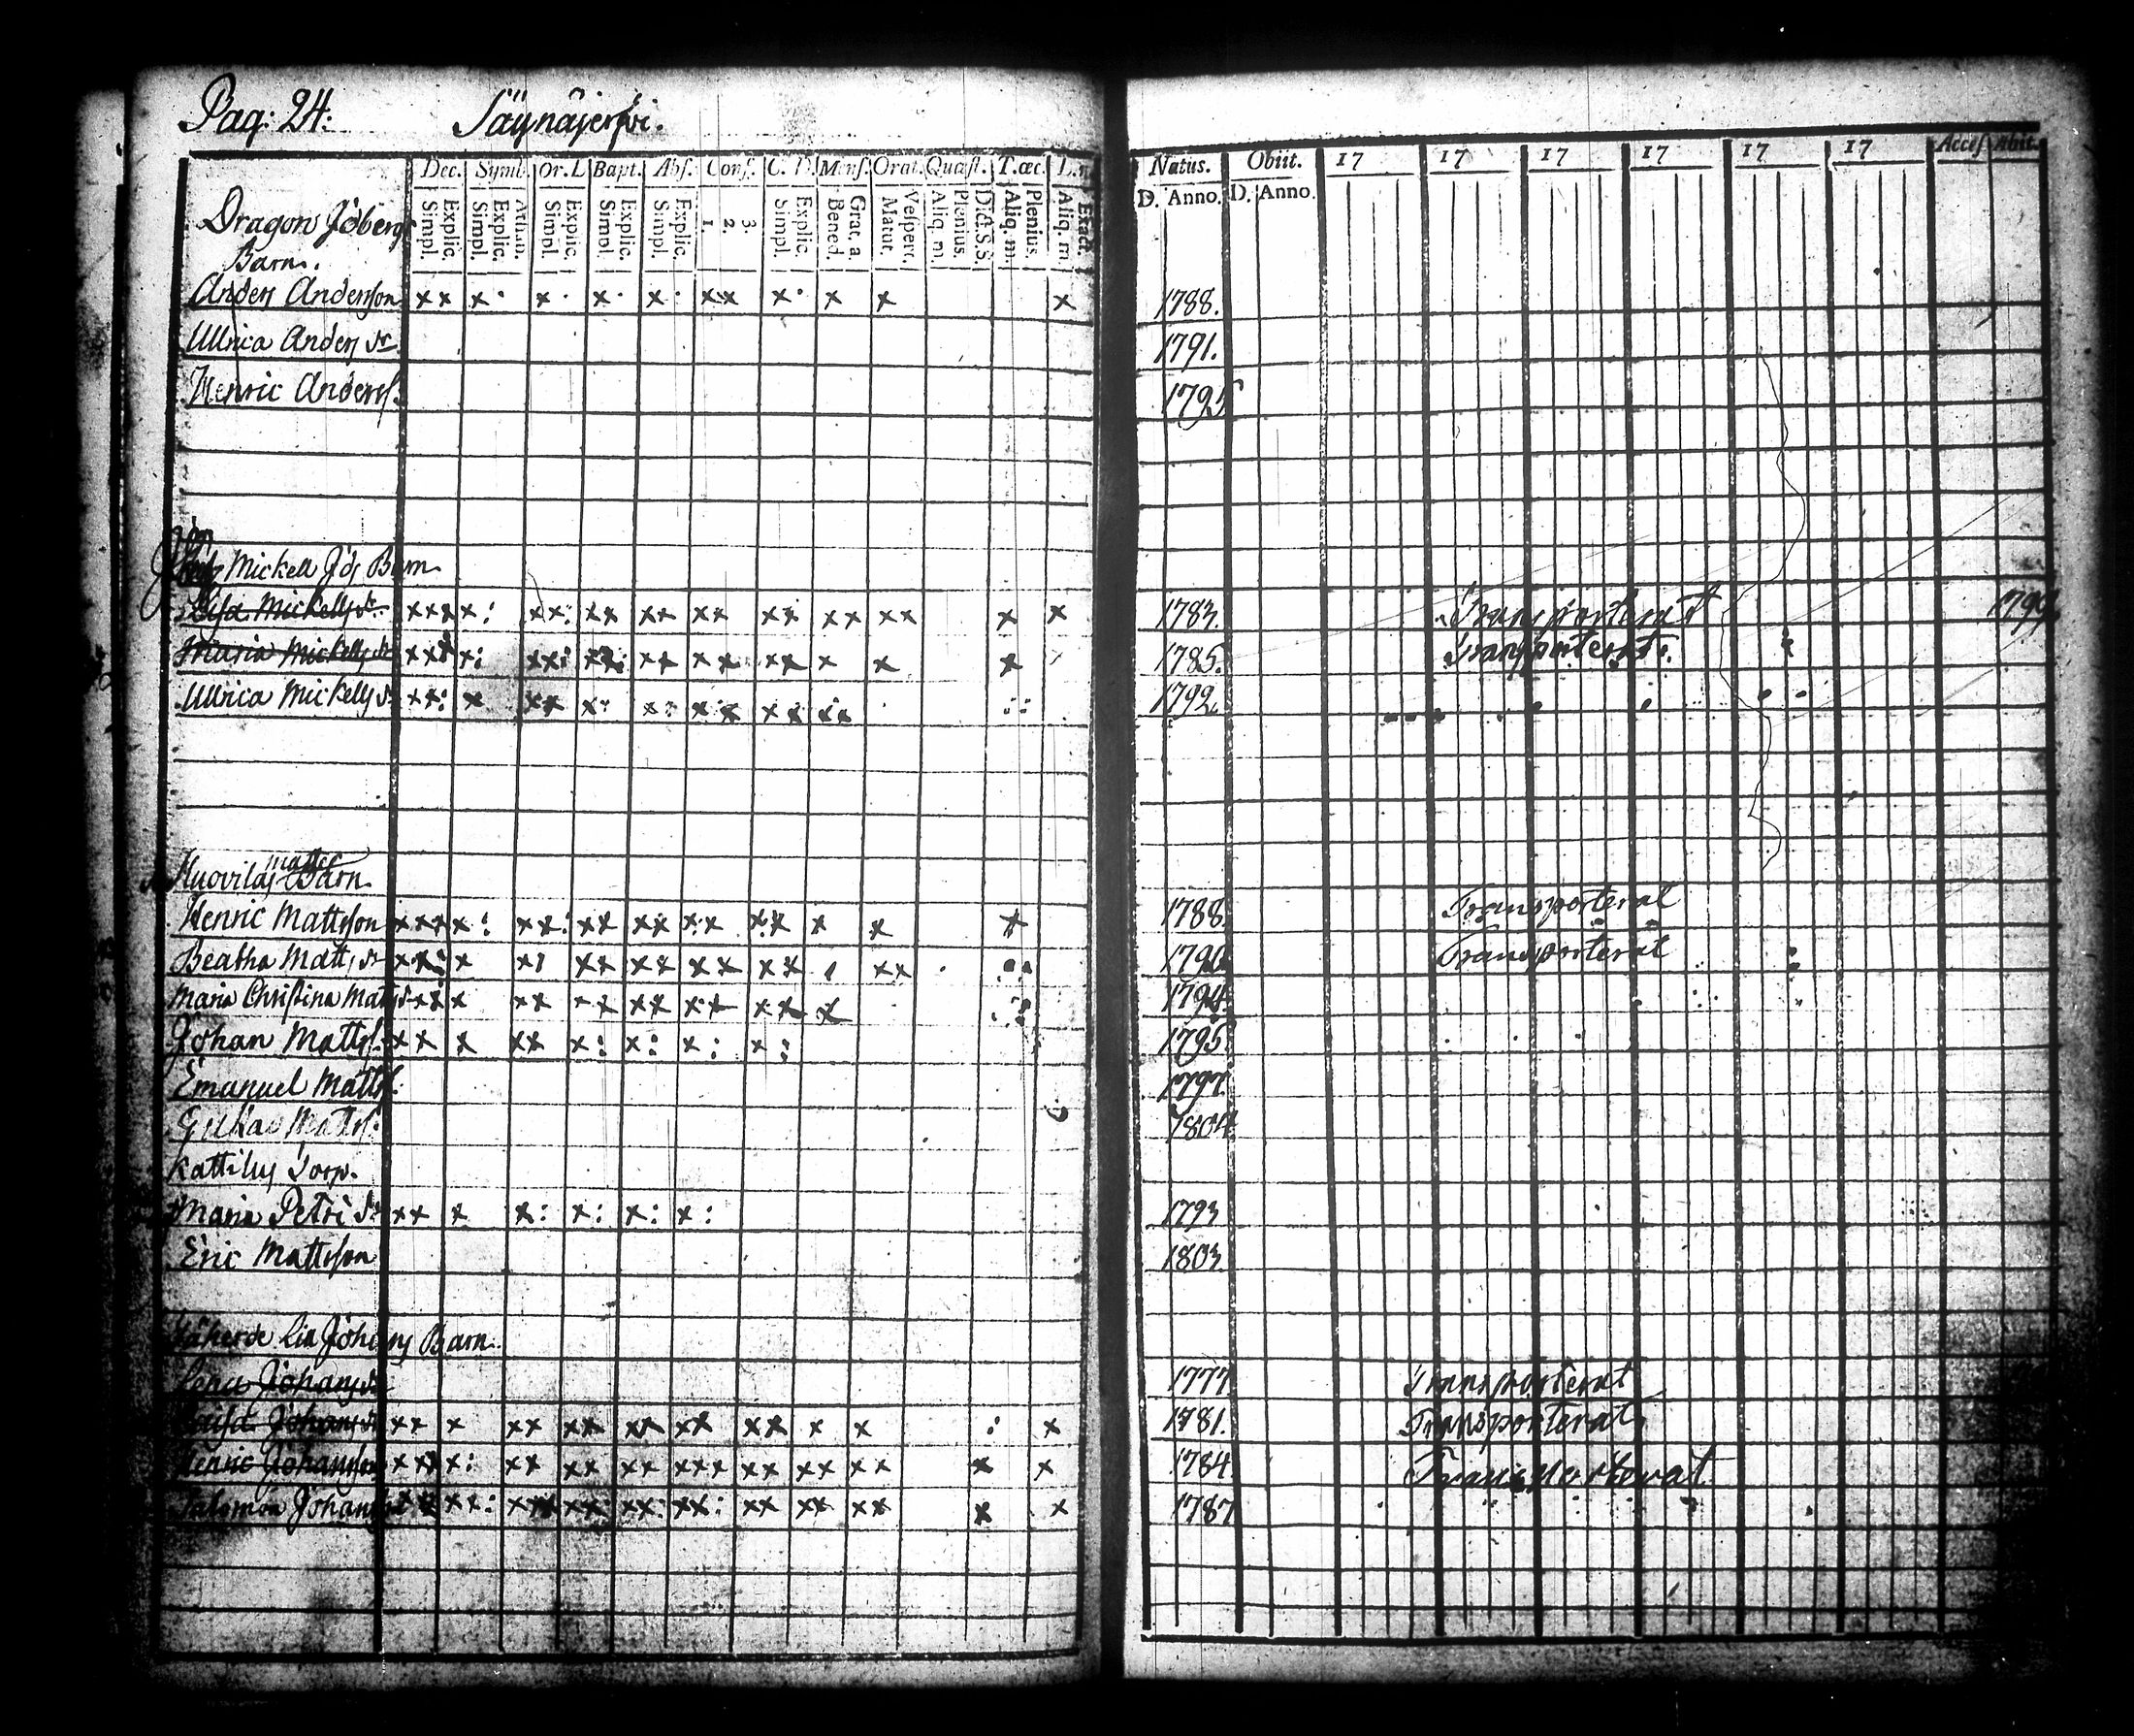 Pag: 24. Säynäjerfvi.
Dec. Symb. Or. D Bapt. Abs. Conf. C. D. Mens. Orat. Quæst. T.œc. Natus. Obiit. 17 17 17 17 17 17 Acces Abiit.
Simpl. Explic. Simpl. Explic. Athan. Simpl. Explic. Simpl. Explic. Simpl. Explic. 1. 2. 3. Simpl. Explic. Bened. Grat. a. Matut. Vespert. Aliq. m. Plenius. Dict. S.S. Aliq. m. Plenius. Aliq. m. Exact. D. Anno. D. Anno.
Dragon
Barn.
Anders Andersson x x x · x · x · x · x x x · x x x 1788.
Ulrica Anders dr 1791.
Henric Anderss. 1795
Mickell Barn
Lisa Mickels dr 1783. Transporterat 1799
Maria Mickels dr 1785. Transporterat.
Ulrica Mickels dr 1792.
Huovilas Matts Barn
Henric Mattsson 1788. Transporterat
Beatha Matts dr 1790 Transporterat
Maria Christina Matts dr 1794.
Johan Matts. 1795
Emanuel Matts. 1797.
Matts. 1804
Kattilus Torp.
Maria Petri dr 1793
Eric Mattsson 1803.
Johans Barn
Lena Johans dr 1777 Transporterat
Johans dr 1781. Transporterat
Henric Johansson 1784. Transporterat
Salomon Johans 1787